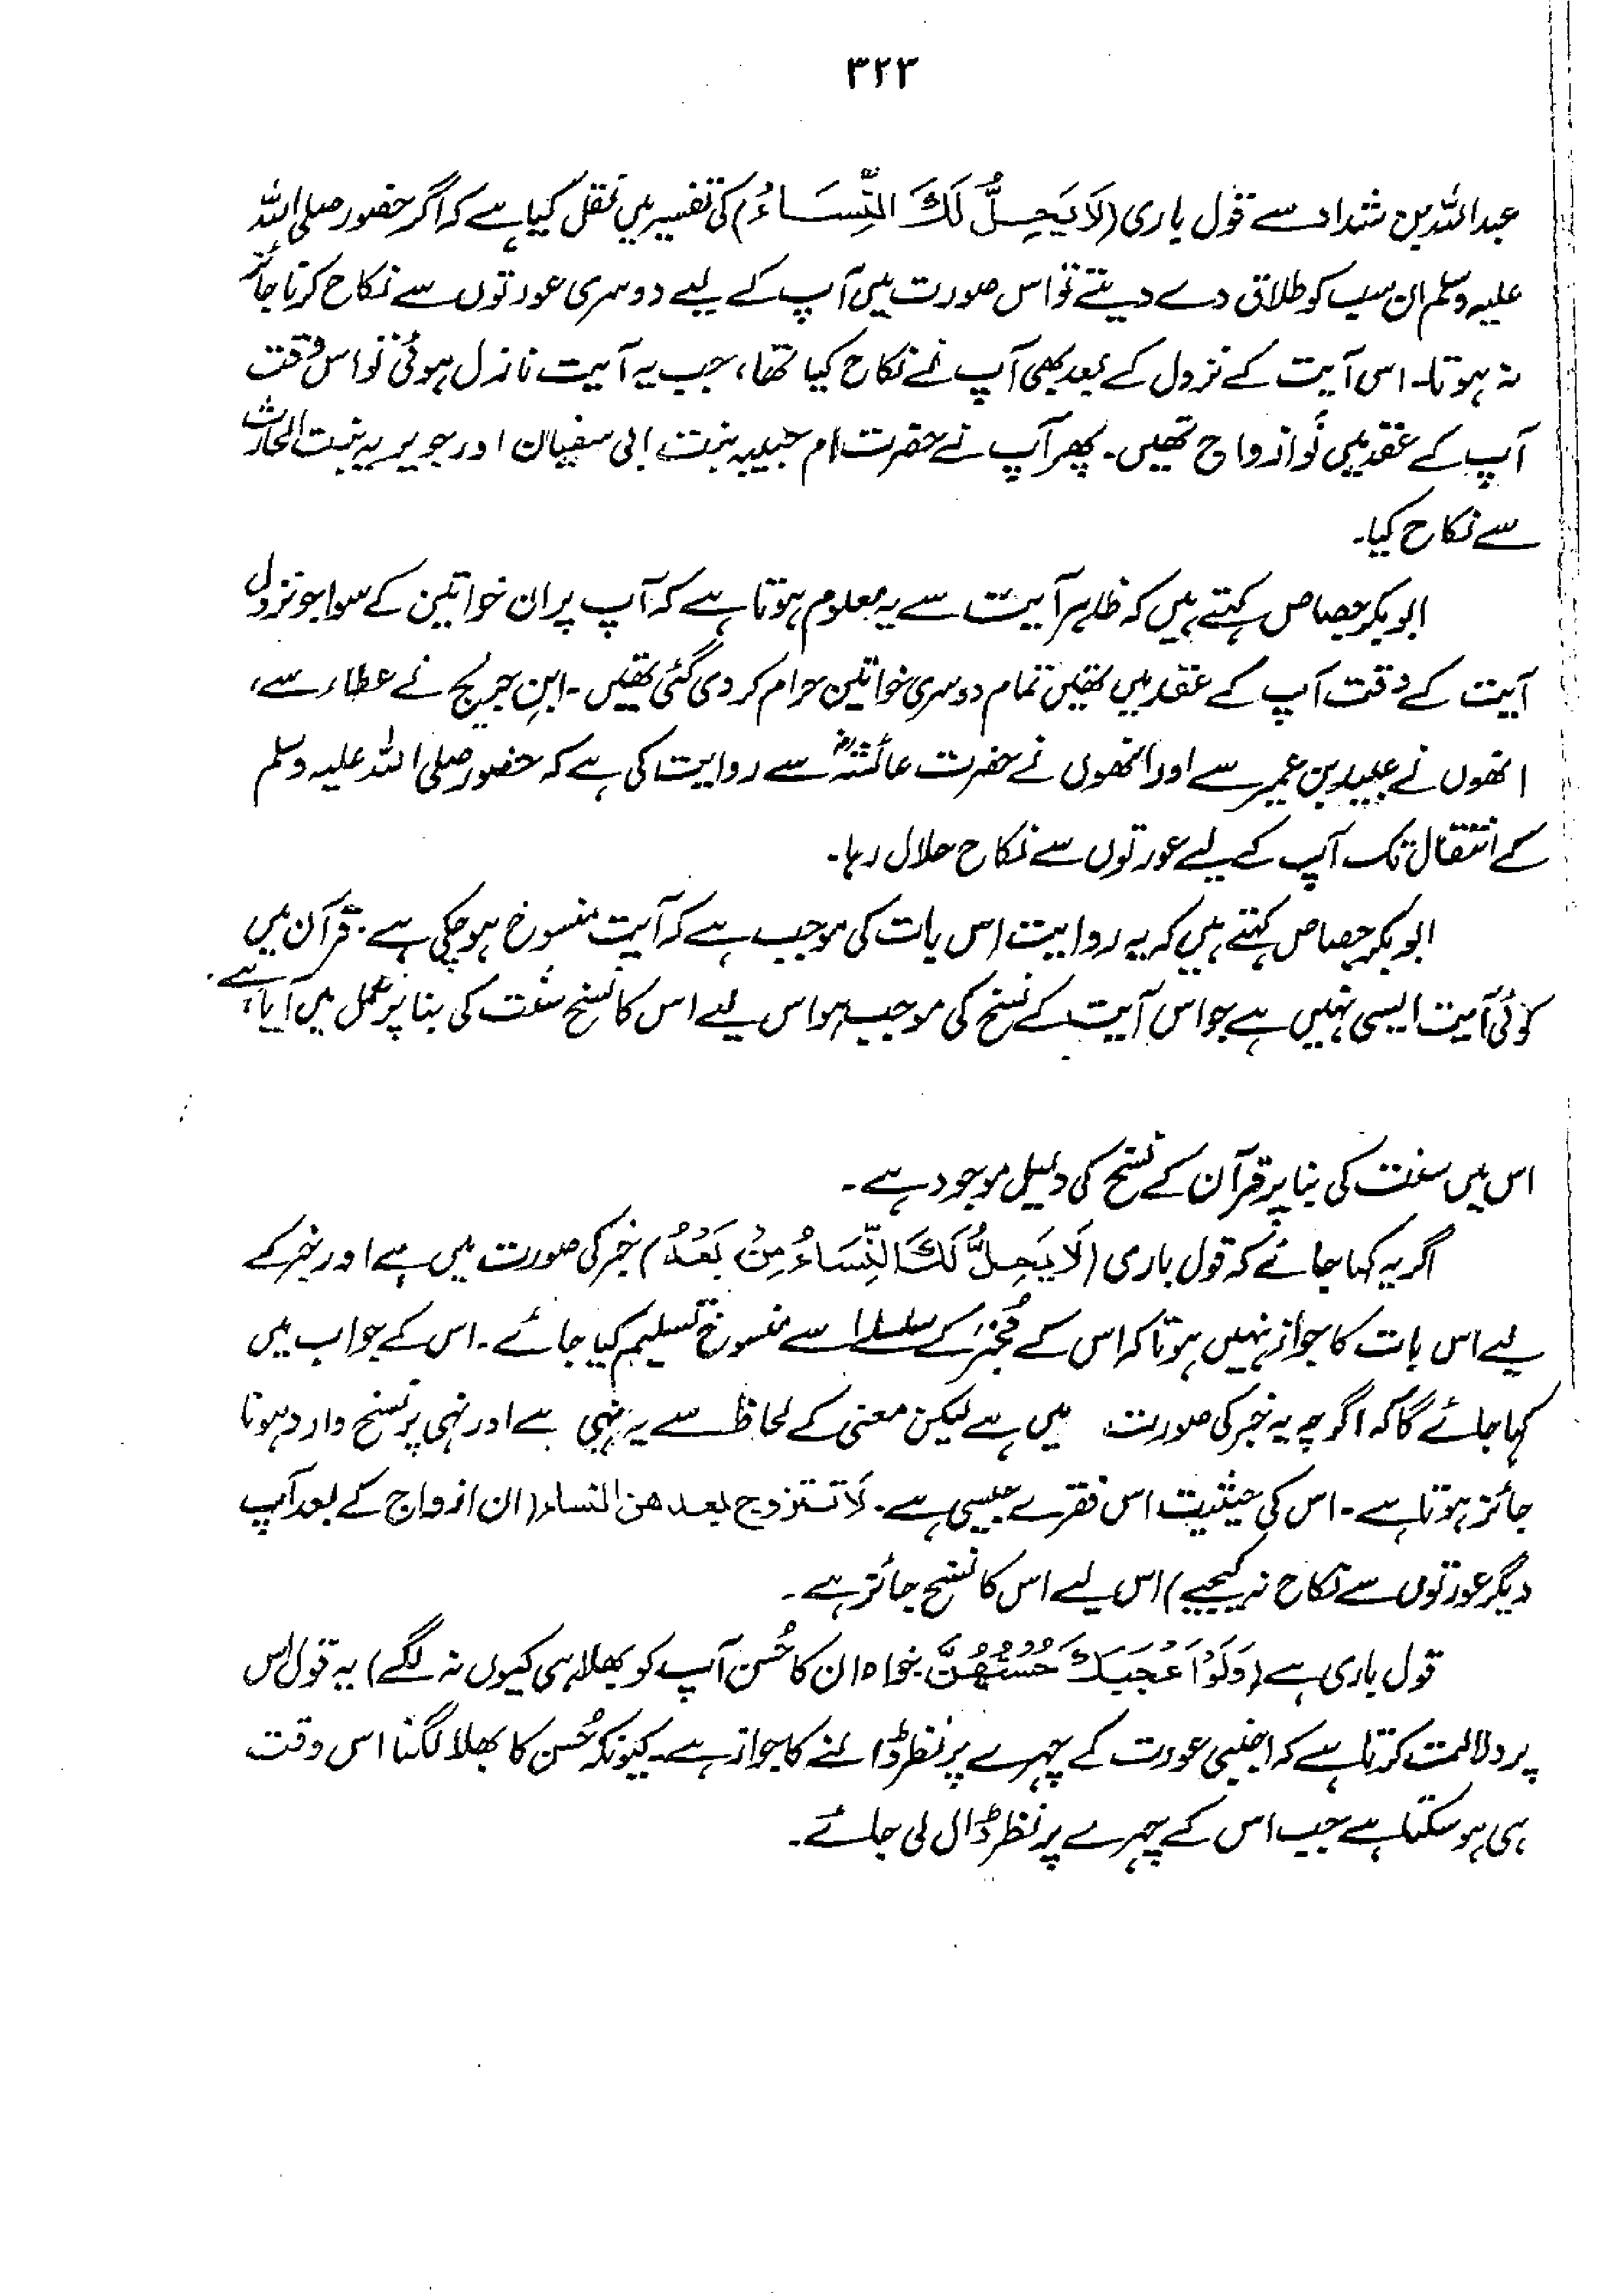 ۳۲۳
عبداللہ بن شداد سے قول باری (لَا یَحِلُّ لَکَ النِّسَاءُ) کی تفسیر میں نقل کیا ہے کہ اگر حضور صلی اللہ
علیہ وسلم ان سب کو طلاق دے دیتے تو اس صورت میں آپ کے لیے دوسری عورتوں سے نکاح کرنا جائز
نہ ہوتا۔ اس آیت کے نزول کے بعد بھی آپ نے نکاح کیا تھا، جب یہ آیت نازل ہوئی تو اس وقت
آپ کے عقد میں نو ازواج تھیں۔ پھر آپ نے حضرت ام حبیبہ بنت ابی سفیان اور جویریہ بنت الحارث
سے نکاح کیا۔
ابوبکر جصاص کہتے ہیں کہ ظاہر آیت سے یہ معلوم ہوتا ہے کہ آپ پر ان خواتین کے سوا جو نزول
آیت کے وقت آپ کے عقد میں تھیں تمام دوسری خواتین حرام کر دی گئی تھیں۔ ابن جریج نے عطاء سے،
انھوں نے عبید بن عمیر سے اور انھوں نے حضرت عائشہؓ سے روایت کی ہے کہ حضور صلی اللہ علیہ وسلم
کے انتقال تک آپ کے لیے عورتوں سے نکاح حلال رہا۔
ابوبکر جصاص کہتے ہیں کہ یہ روایت اس بات کی موجب ہے کہ آیت منسوخ ہو چکی ہے۔ قرآن میں
کوئی آیت ایسی نہیں ہے جو اس آیت کے نسخ کی موجب ہو اس لیے اس کا نسخ سنت کی بنا پر عمل میں آیا ہے۔
اس میں سنت کی بنا پر قرآن کے نسخ کی دلیل موجود ہے۔
اگر یہ کہا جائے کہ قول باری (لَا یَحِلُّ لَکَ النِّسَاءُ مِنْ بَعْدُ) خبر کی صورت میں ہے اور خبر کے
لیے اس بات کا جواز نہیں ہوتا کہ اس کے مُخبَر کے سلسلے اسے منسوخ تسلیم کیا جائے۔ اس کے جواب میں
کہا جائے گا کہ اگرچہ یہ خبر کی صورت میں ہے لیکن معنی کے لحاظ سے یہ نہی ہے اور نہی پر نسخ وارد ہونا
جائز ہوتا ہے۔ اس کی حیثیت اس فقرے جیسی ہے۔ لا تتزوج بعد هن النساء (ان ازواج کے بعد آپ
دیگر عورتوں سے نکاح نہ کیجیے) اس لیے اس کا نسخ جائز ہے۔
قول باری ہے (وَلَوْ اَعْجَبَکَ حُسْنُهُنَّ خواہ ان کا حُسن آپ کو بھلا ہی کیوں نہ لگے) یہ قول اس
پر دلالت کرتا ہے کہ اجنبی عورت کے چہرے پر نظر ڈالنے کا جواز ہے۔ کیونکہ حُسن کا بھلا لگنا اس وقت
ہی ہو سکتا ہے جب اس کے چہرے پر نظر ڈال لی جائے۔